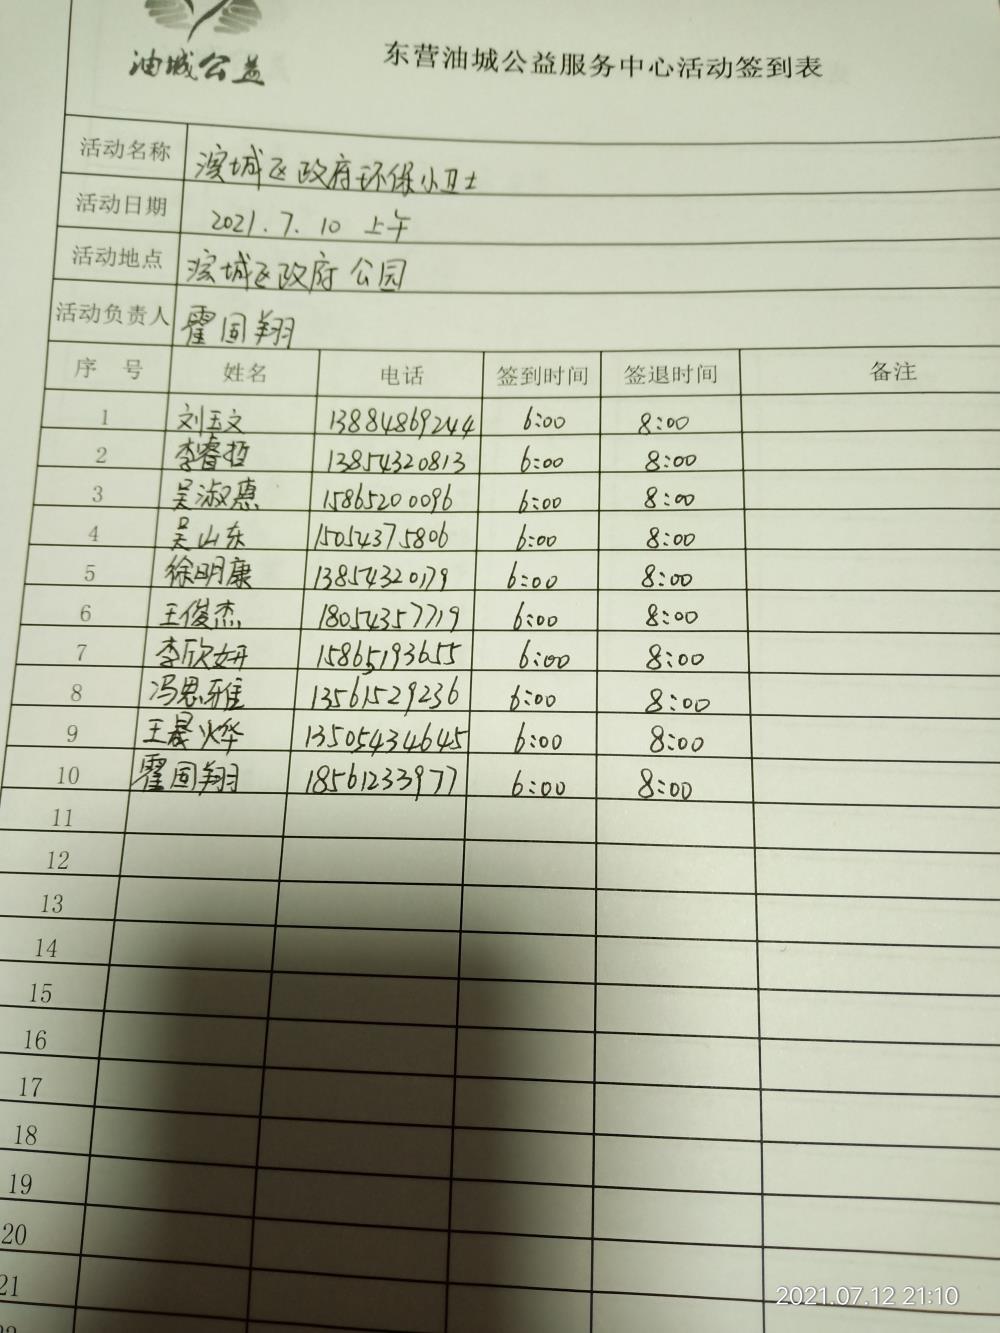 油城公益
东营油城公益服务中心活动签到表
活动名称 滨城区政府环保小卫士
活动日期 2021.7.10 上午
活动地点 滨城区政府公园
活动负责人 霍固翔
序 号 姓名 电话 签到时间 签退时间 备注
1 刘玉文 13884869244 6:00 8:00
2 李睿哲 13854320813 6:00 8:00
3 吴淑惠 15865200096 6:00 8:00
4 吴山东 15054375806 6:00 8:00
5 徐明康 13854320179 6:00 8:00
6 王俊杰 18054357719 6:00 8:00
7 李欣妍 15865193655 6:00 8:00
8 冯思雅 13561529236 6:00 8:00
9 王晨烨 13505434645 6:00 8:00
10 霍固翔 18561233977 6:00 8:00
11
12
13
14
15
16
17
18
19
20
21
2021.07.12 21:10